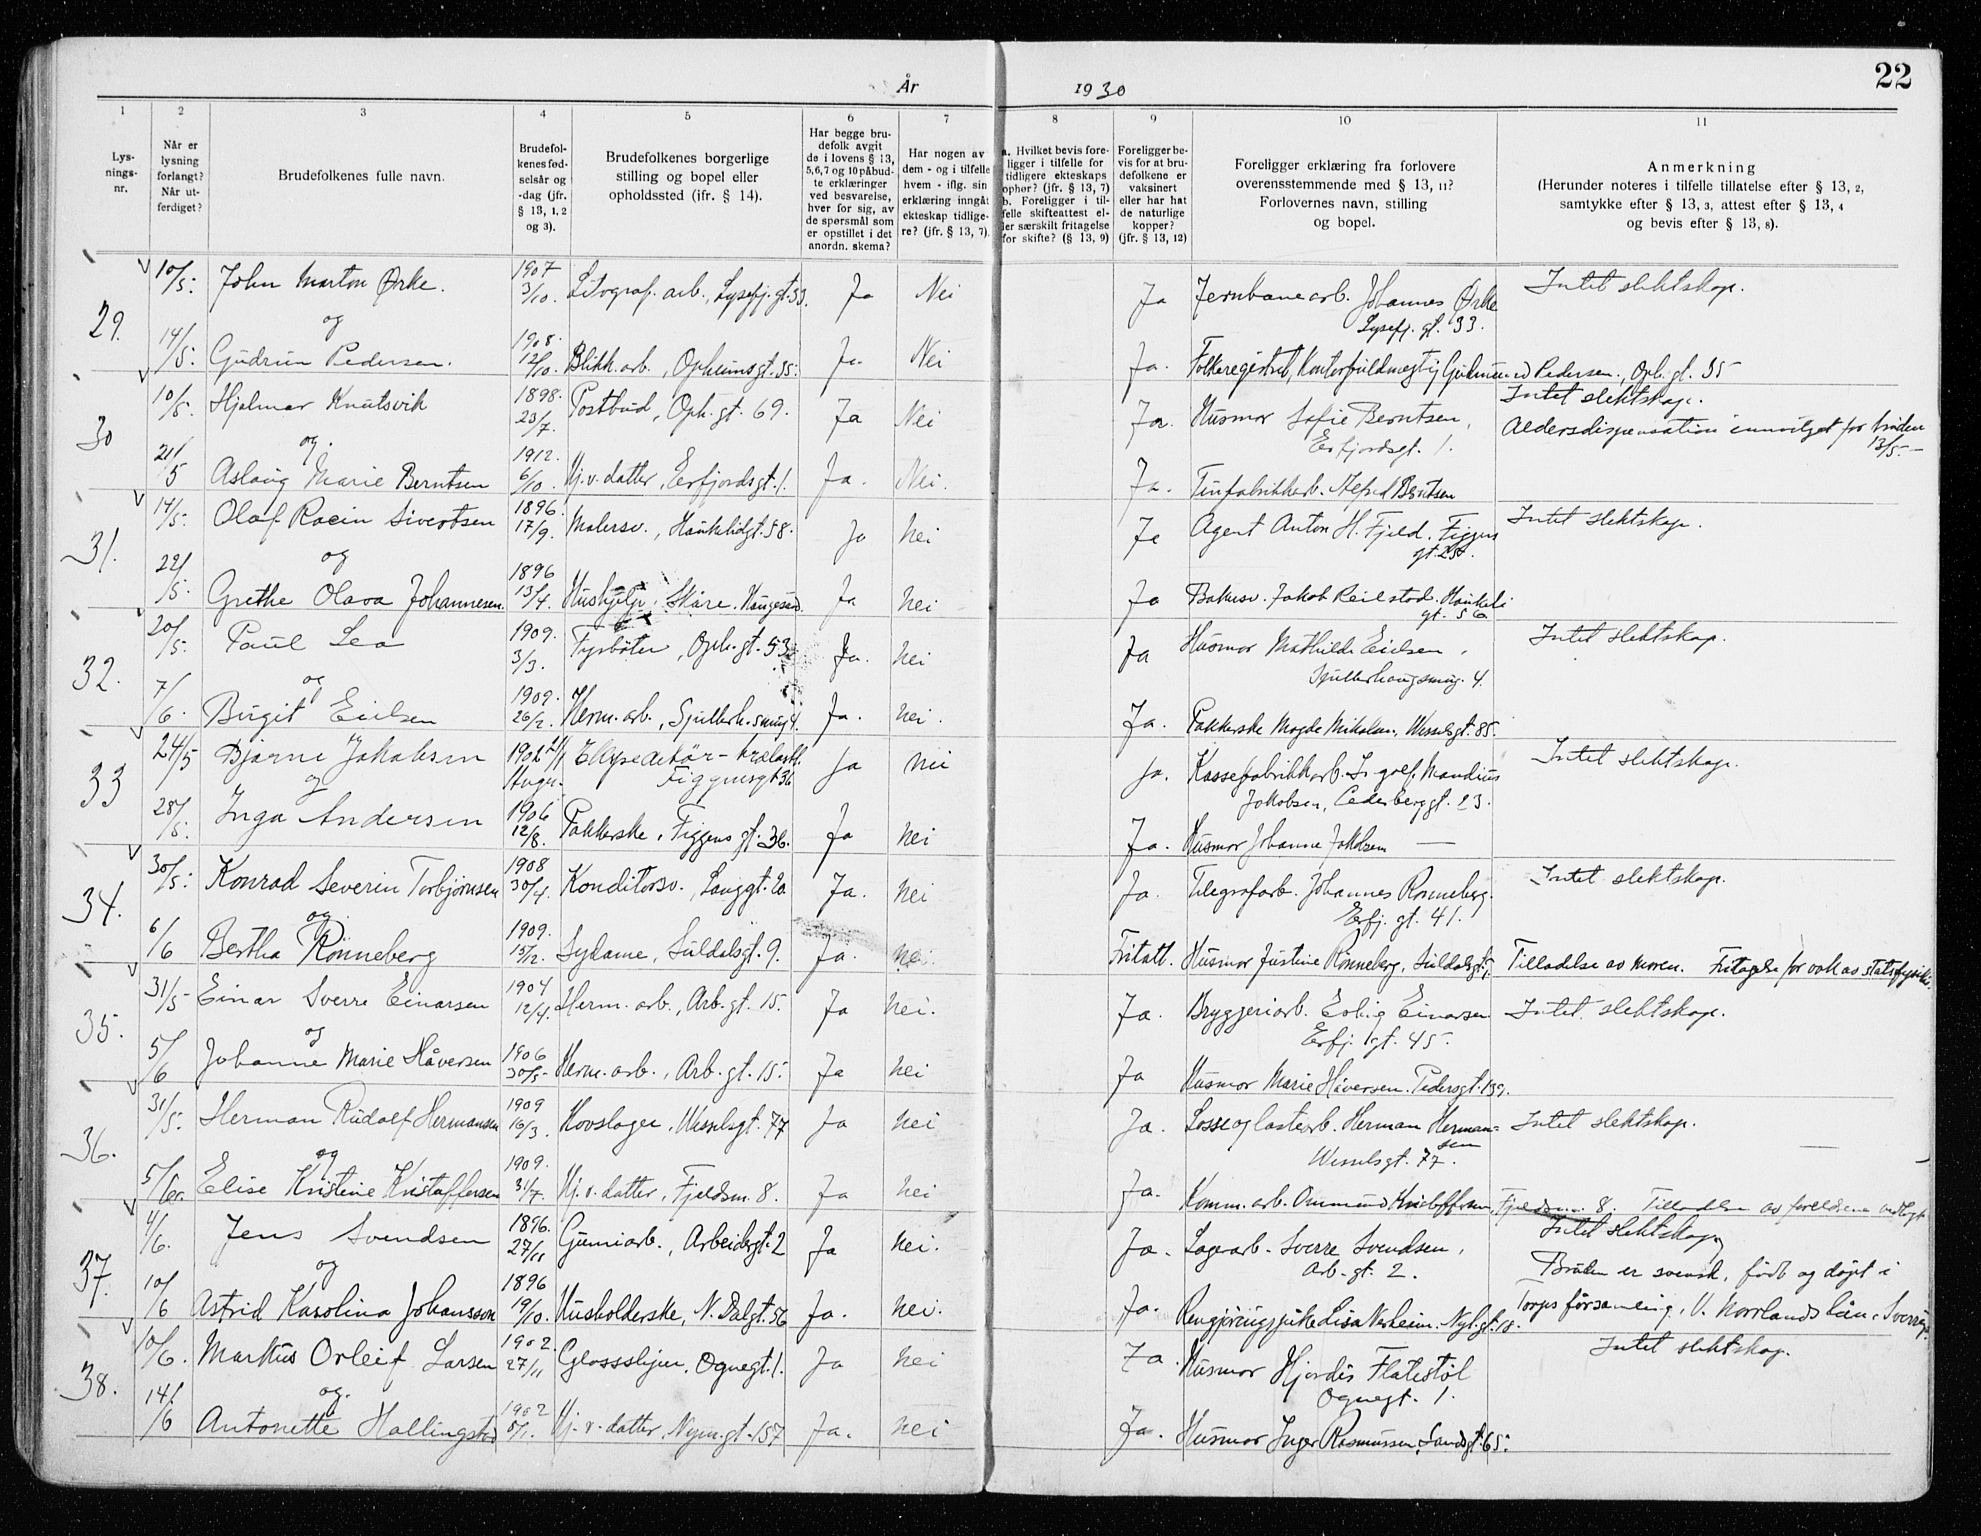 22
År 1930
1 2 3 4 5 6 7 8 9 10 11
Lys-
nings-
nr.
Når er
lysning
forlangt?
Når ut-
ferdiget?
Brudefolkenes fulle navn.
Brudefol-
kenes fød-
selsår og
-dag (jfr.
§ 13, 1, 2
og 3).
Brudefolkenes borgerlige
stilling og bopel eller
opholdssted (jfr. § 14).
Har begge bru-
defolk avgit
de i lovens § 13,
5,6,7 og 10 påbud-
te erklæringer
ved besvarelse,
hver for sig, av
de spørsmål som
er opstillet i det
anordn. skema?
Har nogen av
dem - og i tilfelle
hvem - iflg. sin
erklæring inngåt
ekteskap tidlige-
re? (jfr. § 13, 7).
a. Hvilket bevis fore-
ligger i tilfelle for
tidligere ekteskaps
ophør? (jfr. § 13, 7)
b. Foreligger i til-
felle skifteattest el-
ler særskilt fritagelse
for skifte? (§ 13, 9)
Foreligger be-
vis for at bru-
defolkene er
vaksinert
eller har hat
de naturlige
kopper?
(jfr. § 13, 12)
Foreligger erklæring fra forlovere
overensstemmende med § 13, 11?
Forlovernes navn, stilling
og bopel.
Anmerkning
(Herunder noteres i tilfelle tillatelse efter § 13, 2,
samtykke efter § 13, 3, attest efter § 13, 4
og bevis efter § 13, 8).
29. 10/5. John Marton Ørke. 1907 3/10. Litograf. arb., Lysefj. gt. 33. Ja Nei Ja Jernbanearb. Johannes Ørke Intet slektskap.
Lysefj. gt. 33.
og
14/5. Gudrun Pedersen. 1908. 12/10. Blikk. arb., Opheimsgt. 35. Ja. Nei Ja. Folkeregistret, Kontorfuldmegtig Gudmund Pedersen., Oph. gt. 35
30 10/5. Hjalmar Knutsvik 1898. 23/7. Postbud, Oph. gt. 69. Ja Nei Ja. Husmor Sofie Berntsen, Intet slektskap.
Erfjordsgt. 1. Aldersdispensation innvilget for bruden
13/5. -
og.
21/5 Aslaug Marie Berntsen 1912. 6/10. Hj. v. datter, Erfjordsgt. 1. Ja. Nei. Ja. Tinfabrikkarb. Alfred Berntsen
31. 14/5. Olaf Racin Sivertsen 1896. 17/9. Malersv., Haukeligt. 58. Ja Nei Ja Agent Anton H. Fjeld. Figgens Intet slektskap.
gt. 25.
og
22/5. Grethe Olava Johannesen. 1896 13/4. Hushjelp. Skåre. Haugesund. Ja Nei Ja Bakersv. Jakob Reilstad. Haukeli
gt. 56
32. 20/5. Paul Lea 1909. 3/3. Fyrbøter, Oph. gt. 53. Ja. Nei Ja Husmor Mathilde Eielsen, Intet slektskap.
Spillerhaugsmug. 4.
og
7/6. Birgit Eielsen 1909. 26/2. Herm. arb., Spillerh. smug 4. Ja. Nei. Ja. Pakkerske Magda Mikalsen, Wesselsgt. 85.
33 24/5 Bjarne Jakobsen Ekspeditør - Ja Nei Ja. Kassefabrikkarb. Mandius Intet slektskap.
Figgensgt 36 Jakobsen, Cederberggt. 23.
og
28/5. Inga Andersen 1906 12/8. Pakkerske, Figgens gt. 36. Ja Nei Ja. Husmor Johanne Jakobsen —
34. 30/5. Konrad Severin Torbjørnsen 1908 30/4. Konditorsv., Langgt. 20 Ja. Nei Ja. Telegrafarb. Johannes Rønneberg. Intet slektskap.
Erfj. gt. 41.
og
6/6 Bertha Rønneberg 1909. 15/12. Sydame, Suldalsgt. 9. Ja. Nei. Fritatt. Husmor Justine Rønneberg, Suldalsgt. Tilladelse av moren. Fritagelse for vak av statsfysik.
35. 31/5 Einar Sverre Einarsen 1904 12/4. Herm. arb., Arb. gt. 15. Ja Nei. Ja. Bryggeriarb. Einarsen Intet slektskap.
Erfj. gt. 45.
og
5/6 Johanne Marie Håversen 1906 30/5 Herm. arb., Arb. gt. 15. Ja Nei Ja Husmor Marie Håversen. Pedersgt. 139.
36. 31/5. Herman Rudolf Hermansen 1909 16/3. Hovslager, Wesselsgt. 77 Ja Nei Ja. Losse og lastearb. Herman Herman= Intet slektskap.
sen
Wesselsgt. 77.
og
5/6. Elise Kristine Kristoffersen 1909. 31/7. Hj. v. datter, Fjeldsm. 8. Ja Nei Ja. Komm. arb. Ommund Kristoffersen, Fjeldsm. 8. Tilladelse av foreldrene vedlagt
37. 4/6. Jens Svendsen 1896. 27/11 Gumiarb., Arbeidergt. 2 Ja Nei. Ja. Lagerarb. Sverre Svendsen, Intet slektskap
Arb. gt. 2. Bruden er svensk, født og døpt i
og
10/6 Astrid Karolina Johansson 1896 19/10. Husholderske, N. Dalgt. 56 Ja. Nei. Ja. Rengjøringspike Lisa Nerheim. Nyl. gt. 18. Torps församling, V. Norrlands län, Sverige
38. 10/6. Markus Orleif Larsen 1902. 27/11 Glassliper, Ognegt. 1. Ja Nei Ja. Husmor Hjordis Flatestøl Intet slektskap.
Ognegt. 1.
og.
14/6 Antonette Hallingstad 1902 5/1. Hj. v. datter, Nym. gt. 157 Ja. Nei Ja. Husmor Inger Rasmussen, Sandsgt. 65.